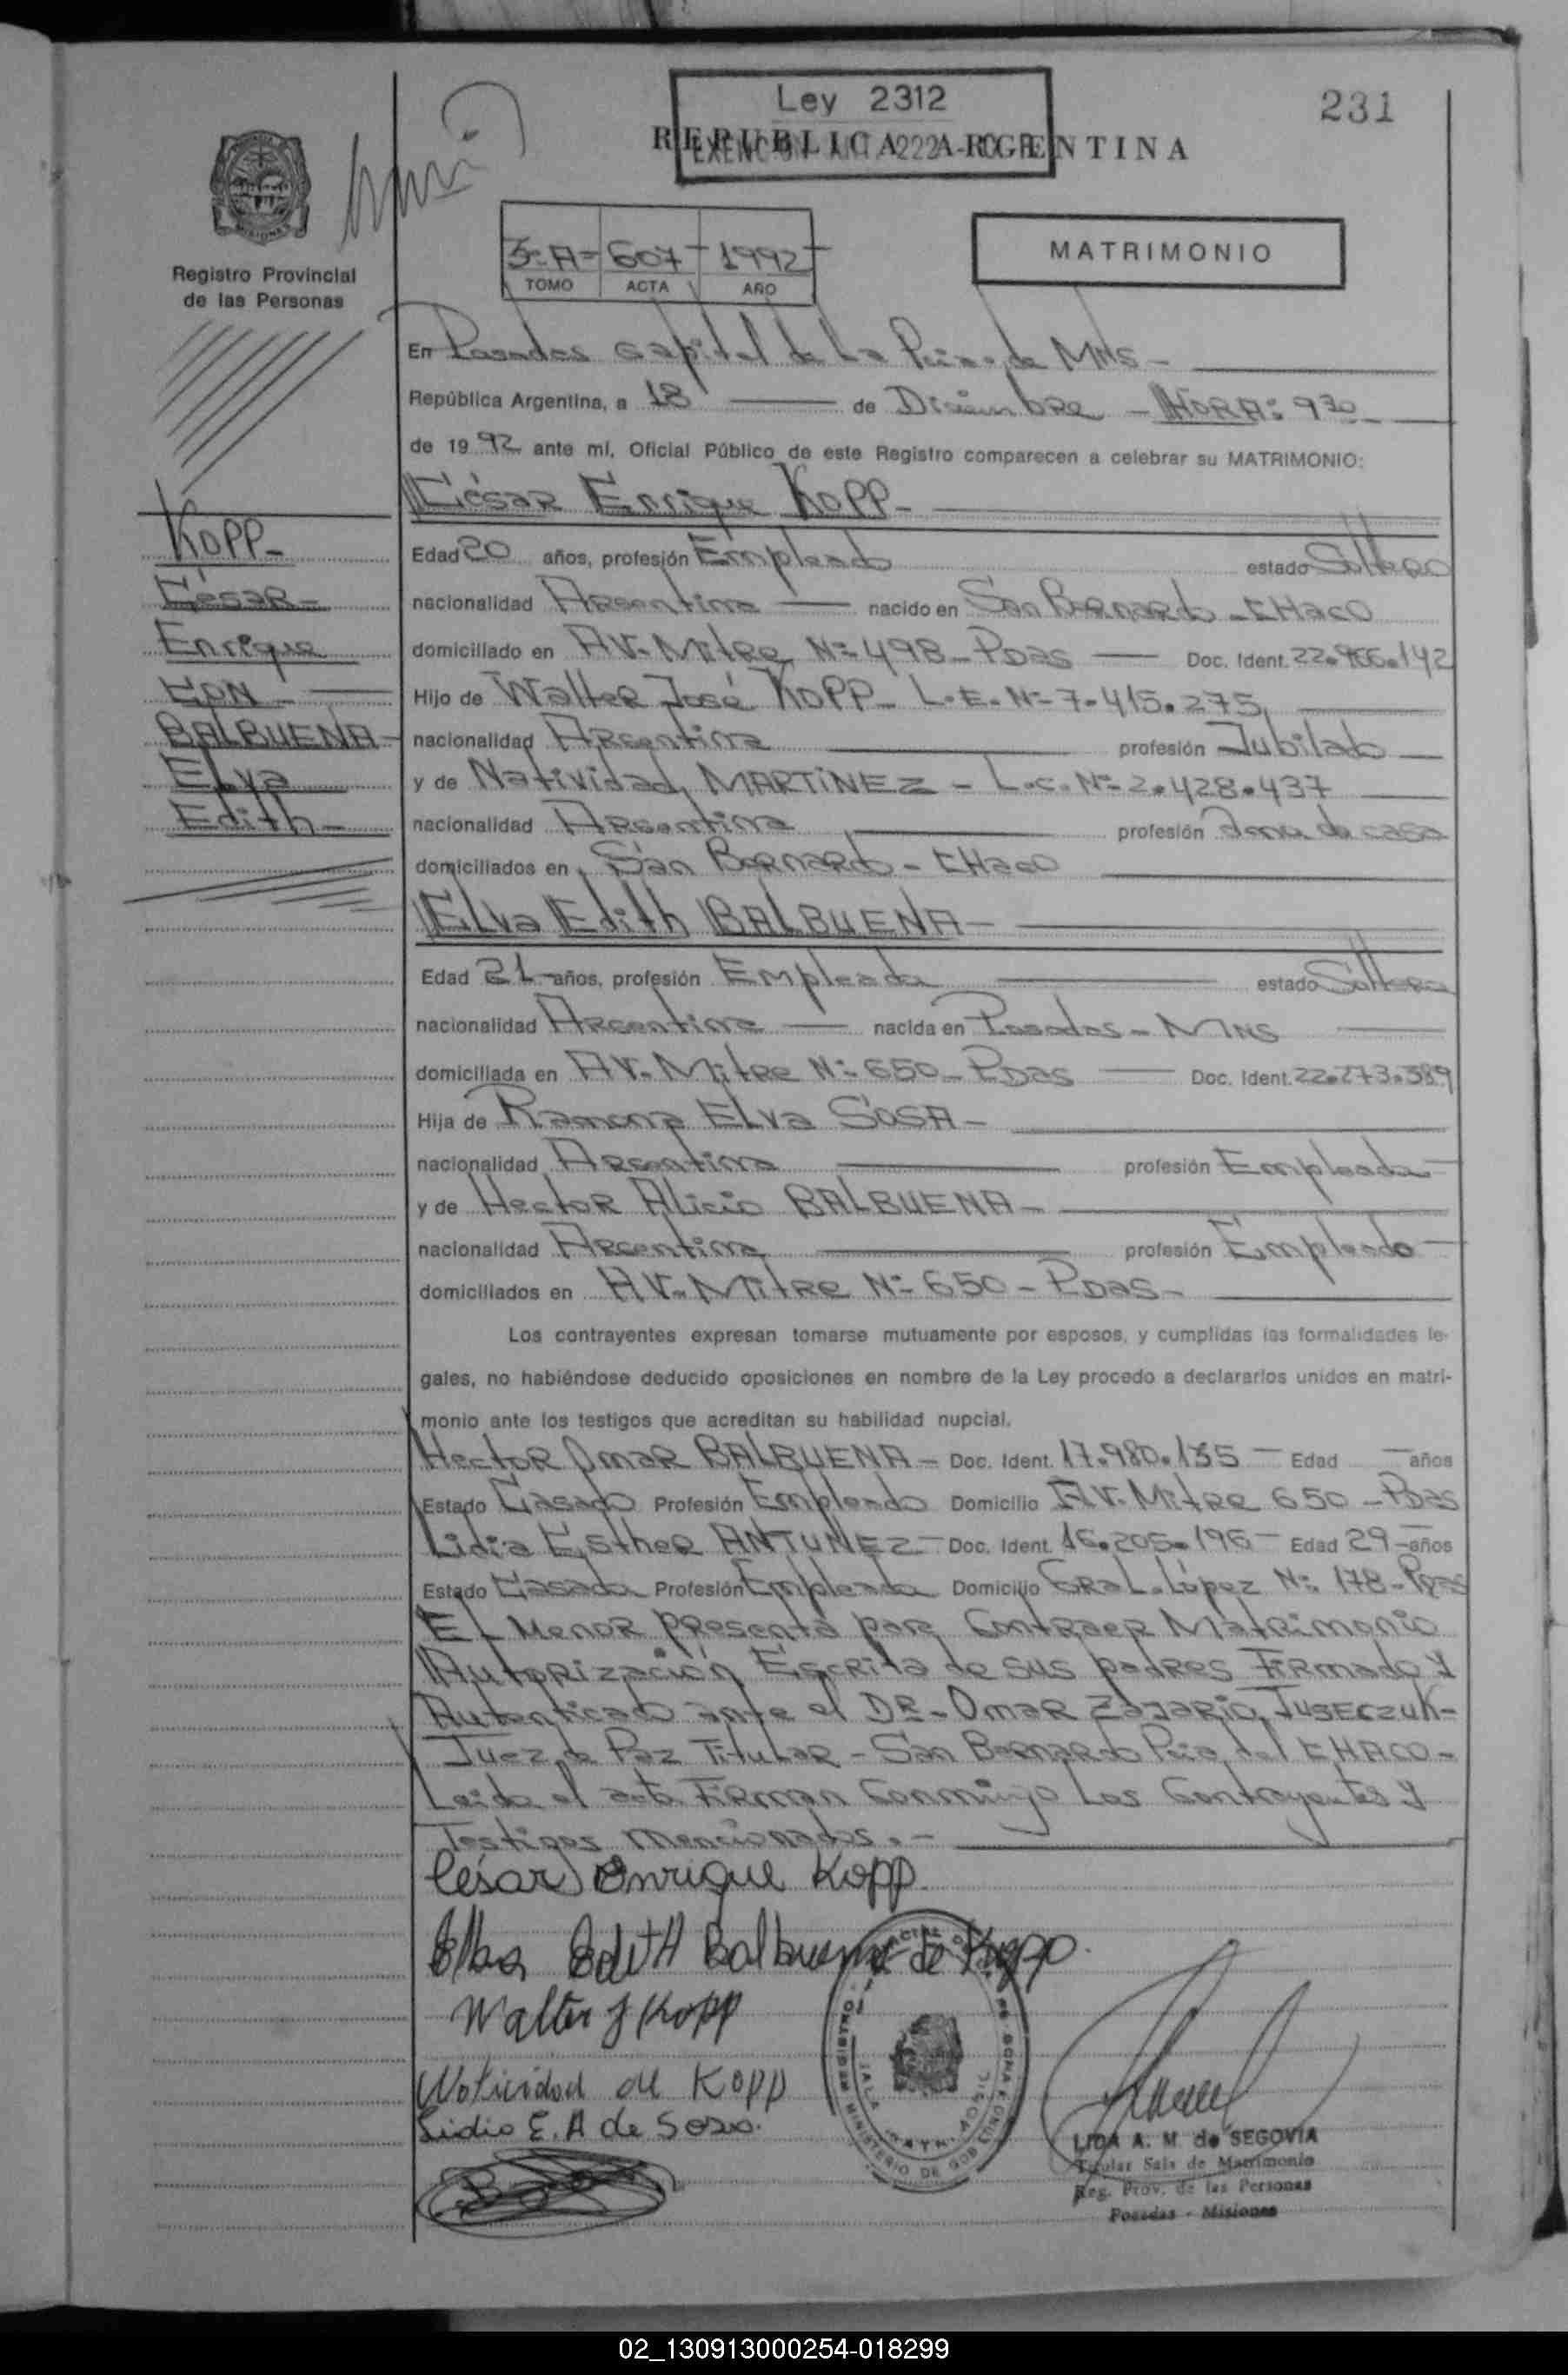 Ley 2312
231
REPUBLICA ARGENTINA
Registro Provincial
de las Personas
3º A - 607 - 1992
TOMO ACTA AÑO
MATRIMONIO
En Posadas Capital de La Pcia. de MNS -
República Argentina, a 18 de Diciembre - HORA: 9 30
de 1992 ante mí, Oficial Público de este Registro comparecen a celebrar su MATRIMONIO:
César Enrique KOPP -
KOPP -
César -
Enrique
CON -
BALBUENA -
Elva
Edith -
Edad 20 años, profesión Empleado estado Soltero
nacionalidad Argentina nacido en San Bernardo - CHaco
domiciliado en AV. Mitre Nº 498 - Pdas Doc. Ident.
Hijo de Walter José KOPP - L.E. Nº 7.415.275
nacionalidad Argentina profesión Jubilado
y de Natividad MARTÍNEZ - L.C. Nº 2.428.437
nacionalidad Argentina profesión Ama de casa
domiciliados en San Bernardo - CHaco
Elva Edith BALBUENA -
Edad 21 años, profesión Empleada estado Soltera
nacionalidad Argentina nacida en Posadas - MNS
domiciliada en AV. Mitre Nº 650 - Pdas Doc. Ident. 22.273.389
Hija de Ramona Elva SOSA -
nacionalidad Argentina profesión Empleada
y de Hector Alicio BALBUENA -
nacionalidad Argentina profesión Empleado
domiciliados en AV. Mitre Nº 650 - Pdas -
Los contrayentes expresan tomarse mutuamente por esposos, y cumplidas las formalidades le-
gales, no habiéndose deducido oposiciones en nombre de la Ley procedo a declararlos unidos en matri-
monio ante los testigos que acreditan su habilidad nupcial.
Hector Omar BALBUENA - Doc. Ident. 17.980.135 - Edad — años
Estado Casado Profesión Empleado Domicilio AV. Mitre 650 - Pdas
Lidia Esther ANTUNEZ - Doc. Ident. 16.205.196 - Edad 29 - años
Estado Casada Profesión Empleada Domicilio Gral. López Nº 178 - Pdas
EL Menor presenta para Contraer Matrimonio
Autorización Escrita de sus padres Firmado y
Autenticado ante el DR. Omar
Juez de Paz Titular - San Bernardo Pcia. del CHACO -
Leida el acta Firman Conmigo Los Contrayentes y
Testigos mencionados. -
César Enrique Kopp.
Elba Edith Balbuena de Kopp.
Walter J Kopp
Natividad de Kopp
Lidia E. A de Sosa.
LIDA A. M. de SEGOVIA
Titular Sala de Matrimonio
Reg. Prov. de las Personas
Posadas - Misiones
02_130913000254-018299